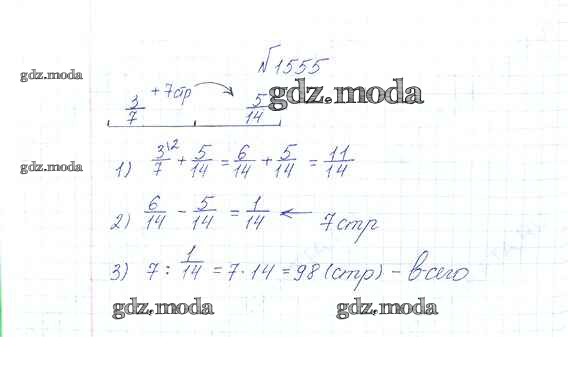 №1555
gdz.moda
3/7 +7стр 5/14
gdz.moda
1) 3/7 \2 + 5/14 = 6/14 + 5/14 = 11/14
gdz.moda
2) 6/14 - 5/14 = 1/14 ← 7стр
3) 7 : 1/14 = 7·14 = 98 (стр) - всего
gdz.moda gdz.moda